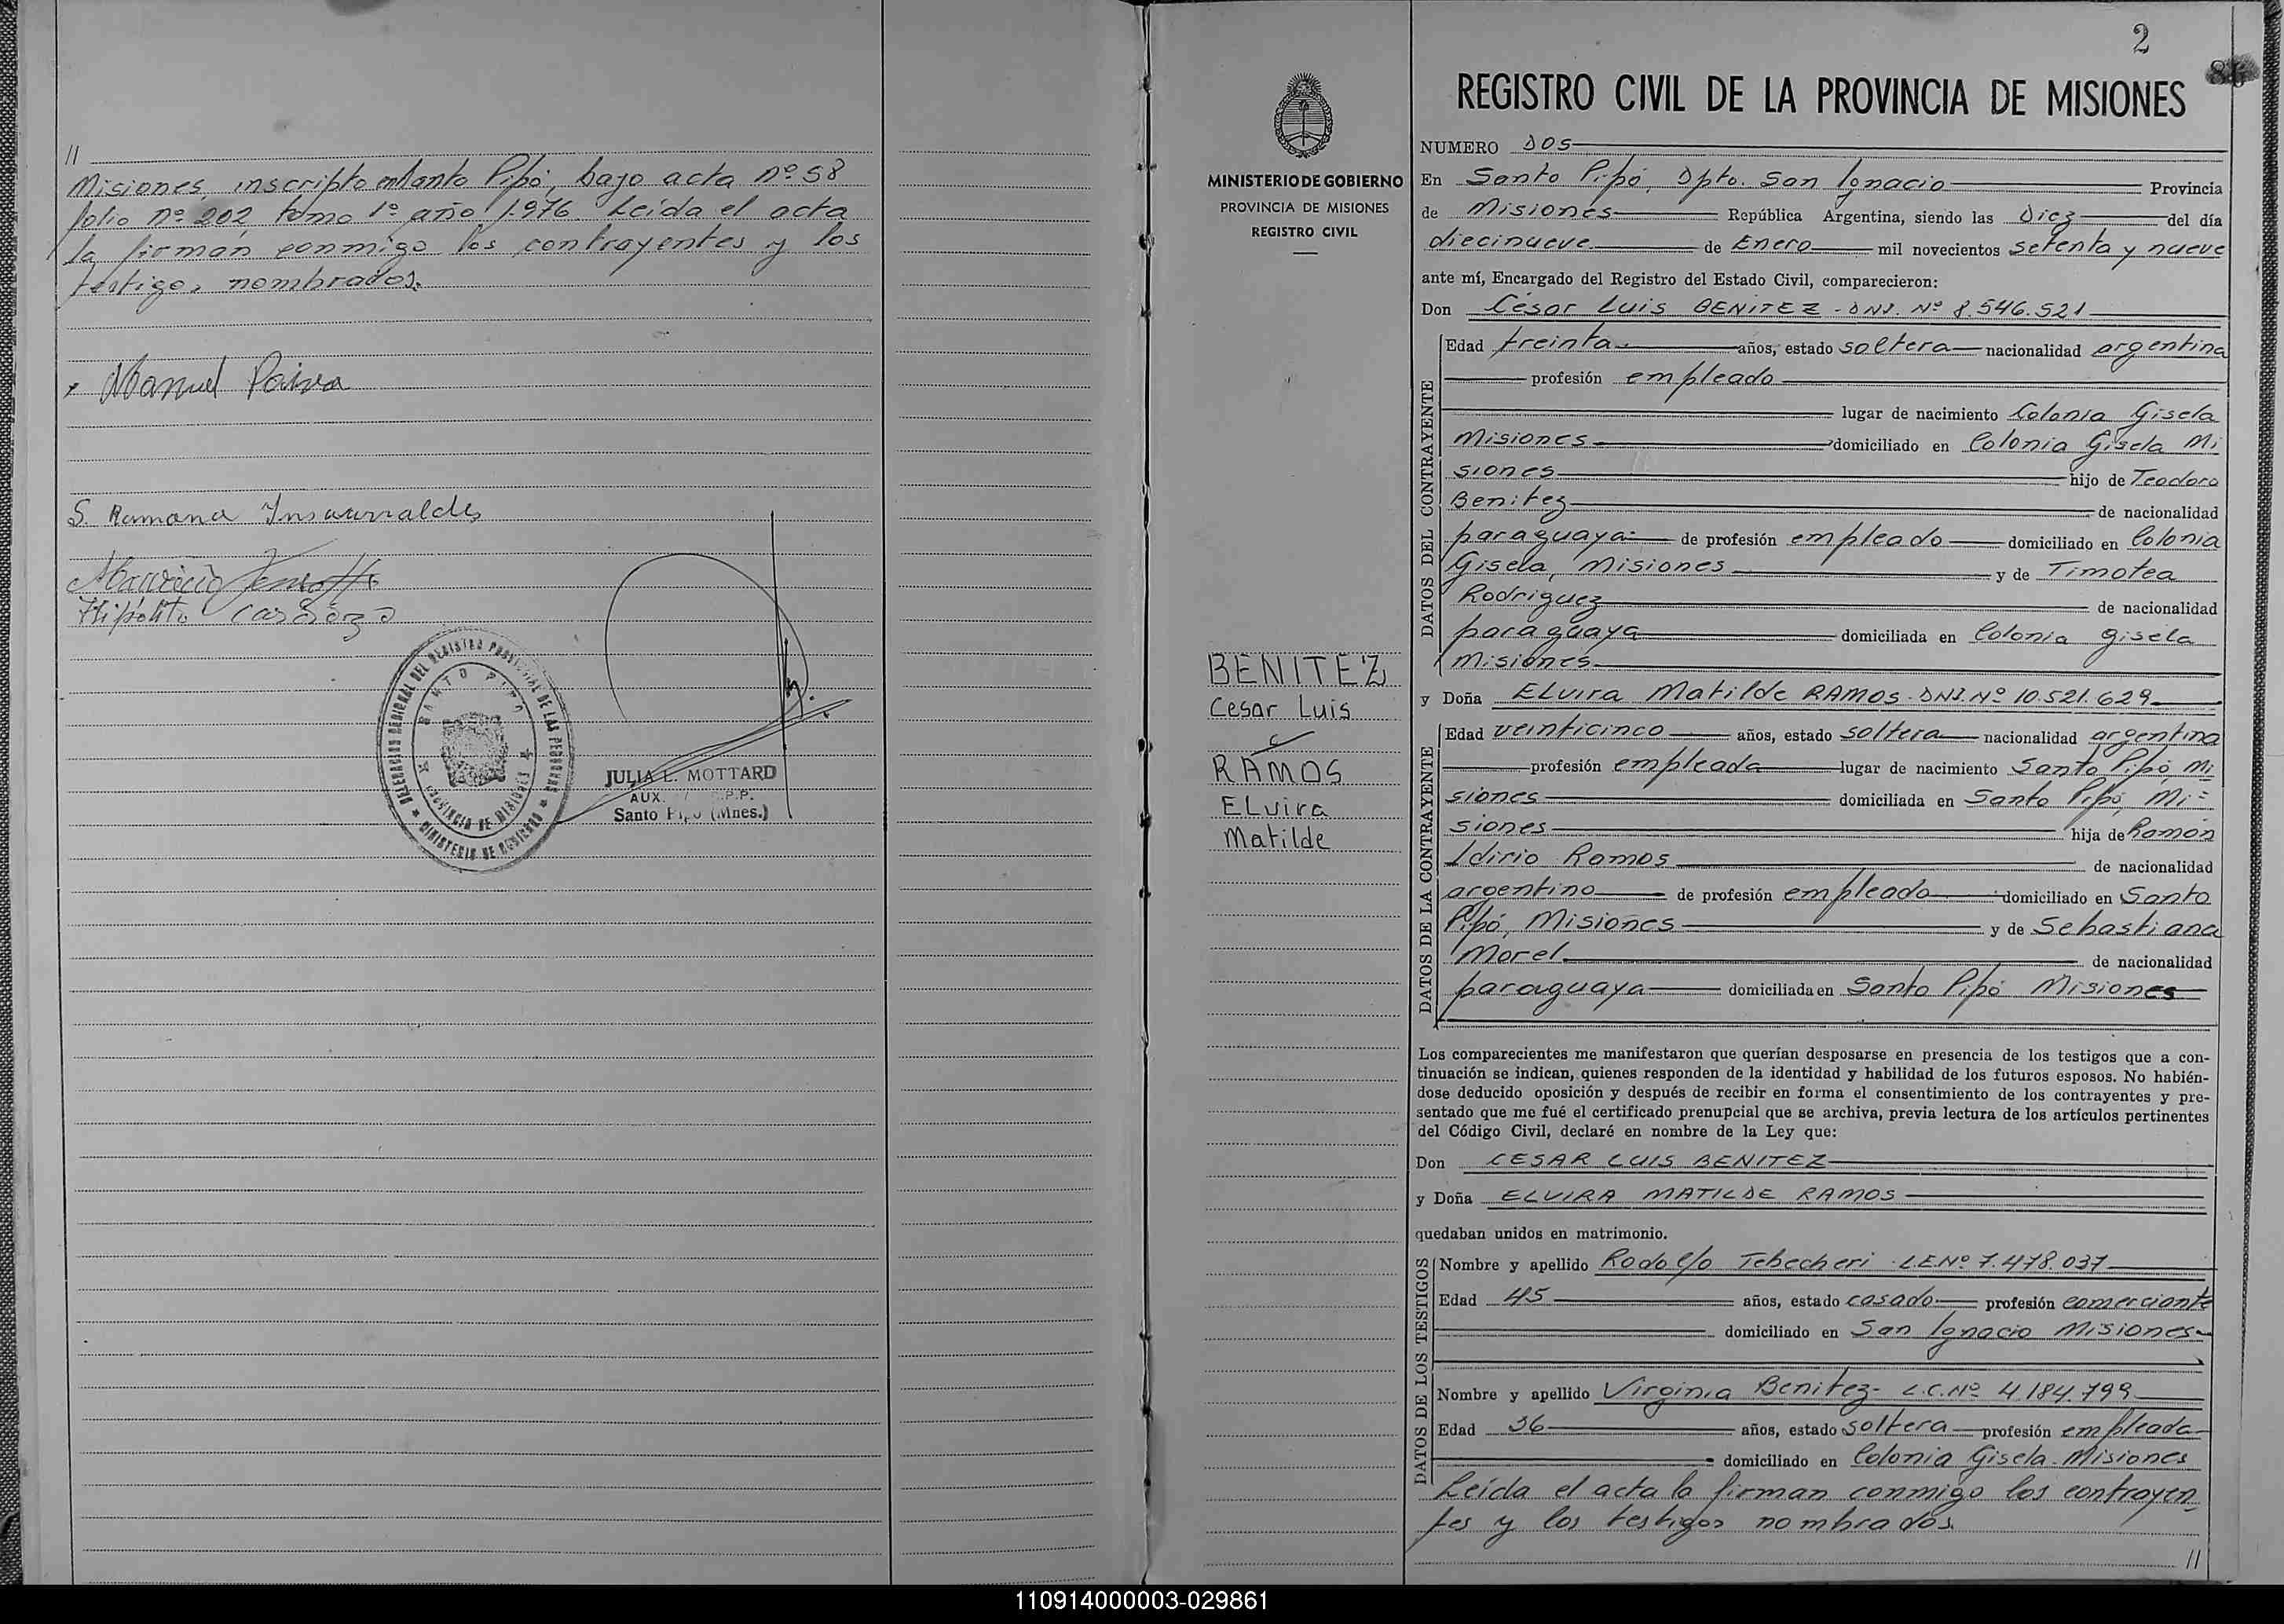 //
Misiones, inscripto en Santo Pipó, bajo acta nº 58
folio nº 202, tomo 1º año 1.976. Leída el acta
la firman conmigo los contrayentes y los
testigos nombrados.
Manuel Paiva
S. Ramona Insaurralde
Mauricio
Hipólito Cardozo
DELEGACION REGIONAL DEL REGISTRO PROVINCIAL DE LAS PERSONAS
SANTO PIPO
PROVINCIA DE MISIONES
MINISTERIO DE GOBIERNO
JULIA E. MOTTARD
AUX. P.P.
Santo Pipó (Mnes.)
2
86
MINISTERIO DE GOBIERNO
PROVINCIA DE MISIONES
REGISTRO CIVIL
BENITEZ
Cesar Luis
c
RAMOS
Elvira
Matilde
REGISTRO CIVIL DE LA PROVINCIA DE MISIONES
NUMERO DOS
En Santo Pipó, Dpto. San Ignacio Provincia
de Misiones República Argentina, siendo las Diez del día
diecinueve de Enero mil novecientos setenta y nueve
ante mí, Encargado del Registro del Estado Civil, comparecieron:
Don César Luis BENITEZ - DNI. Nº 8.546.521
DATOS DEL CONTRAYENTE
Edad treinta años, estado soltera nacionalidad argentina
profesión empleado
lugar de nacimiento Colonia Gisela
Misiones domiciliado en Colonia Gisela Mi
siones hijo de Teodoro
Benitez de nacionalidad
paraguaya de profesión empleado domiciliado en Colonia
Gisela, Misiones y de Timotea
Rodriguez de nacionalidad
paraguaya domiciliada en Colonia Gisela
Misiones
y Doña Elvira Matilde RAMOS - DNI. Nº 10.521.629
DATOS DE LA CONTRAYENTE
Edad veinticinco años, estado soltera nacionalidad argentina
profesión empleada lugar de nacimiento Santo Pipó, Mi
siones domiciliada en Santo Pipó, Mi=
siones hija de Ramón
Idirio Ramos de nacionalidad
argentino de profesión empleado domiciliado en Santo
Pipó, Misiones y de Sebastiana
Morel de nacionalidad
paraguaya domiciliada en Santo Pipó Misiones
Los comparecientes me manifestaron que querían desposarse en presencia de los testigos que a con-
tinuación se indican, quienes responden de la identidad y habilidad de los futuros esposos. No habién-
dose deducido oposición y después de recibir en forma el consentimiento de los contrayentes y pre-
sentado que me fué el certificado prenupcial que se archiva, previa lectura de los artículos pertinentes
del Código Civil, declaré en nombre de la Ley que:
Don CESAR LUIS BENITEZ
y Doña ELVIRA MATILDE RAMOS
quedaban unidos en matrimonio.
DATOS DE LOS TESTIGOS
Nombre y apellido Rodolfo Tebecheri L.E.Nº 7.478.037
Edad 45 años, estado casado profesión comerciante
domiciliado en San Ignacio Misiones
Nombre y apellido Virginia Benitez - L.C.Nº 4.184.799
Edad 36 años, estado soltera profesión empleada
domiciliado en Colonia Gisela - Misiones
Leída el acta la firman conmigo los contrayen_
tes y los testigos nombrados.
//
110914000003-029861